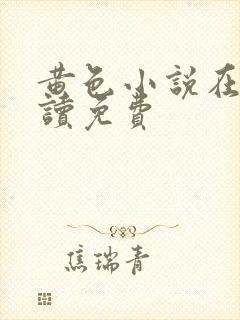 黄色小説在
讀免費
焦瑞青